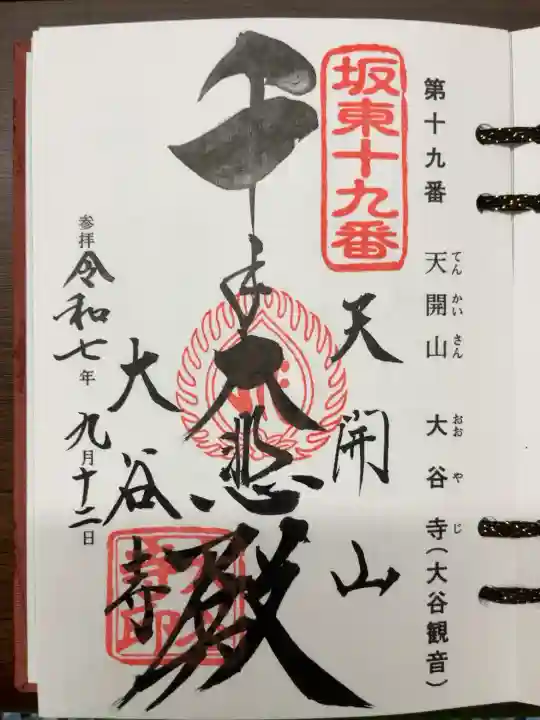 第十九番 天開山 大谷寺(大谷観音)
てんかいさん おおやじ
坂東十九番
天開山
千手大悲殿
大谷寺
参拝 令和七年 九月十二日